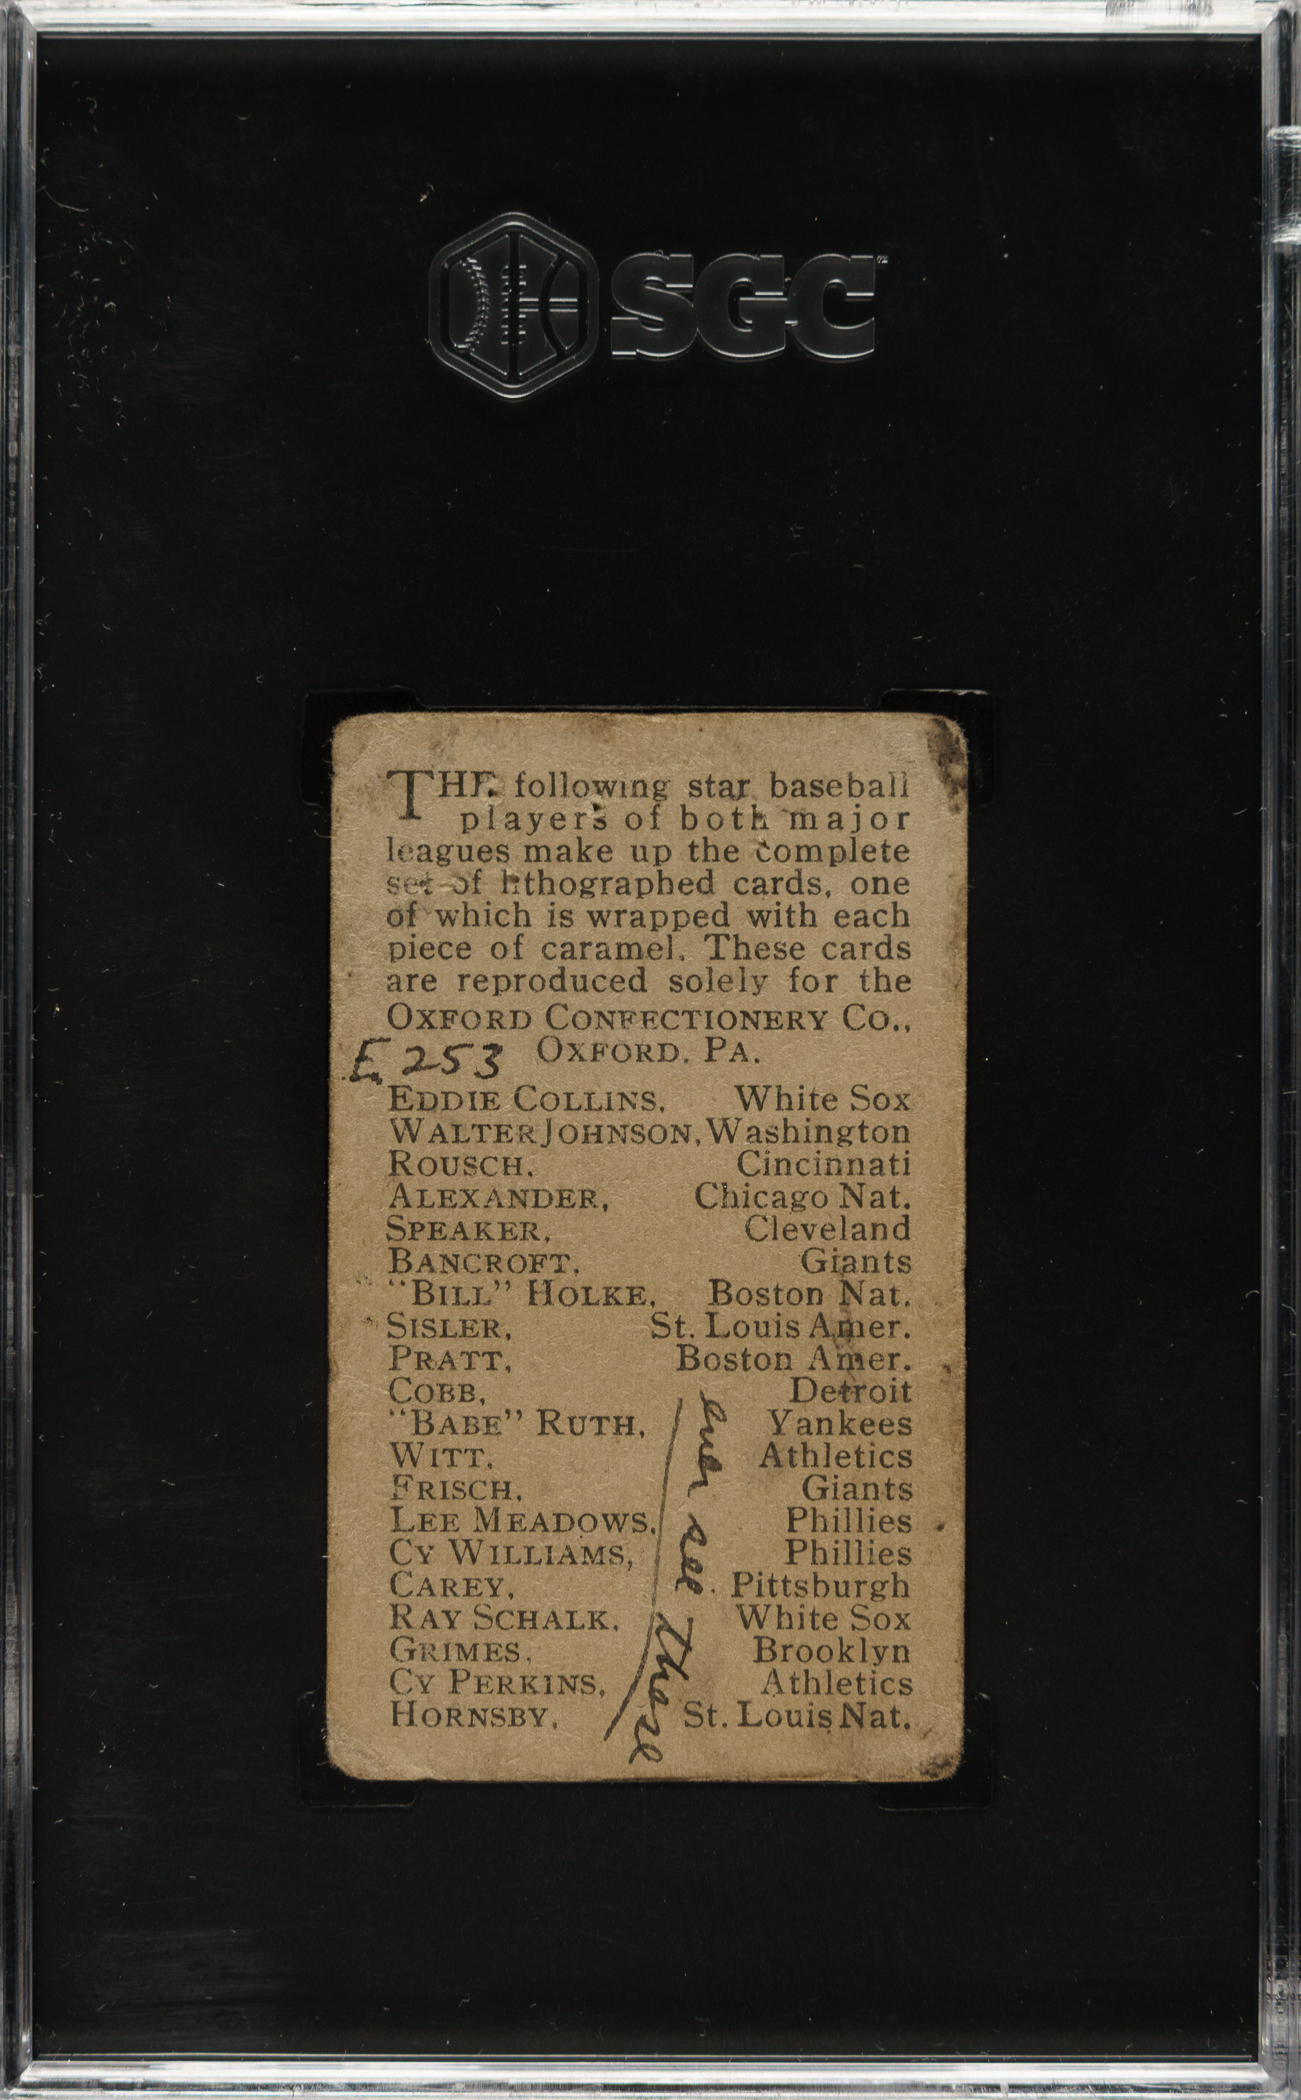 SGC
THE following star baseball
players of both major
leagues make up the complete
set of lithographed cards, one
of which is wrapped with each
piece of caramel. These cards
are reproduced solely for the
OXFORD CONFECTIONERY CO.,
E. 253 OXFORD, PA.
EDDIE COLLINS, White Sox
WALTER JOHNSON, Washington
ROUSCH, Cincinnati
ALEXANDER, Chicago Nat.
SPEAKER, Cleveland
BANCROFT, Giants
"BILL" HOLKE, Boston Nat.
SISLER, St. Louis Amer.
PRATT, Boston Amer.
COBB, Detroit
"BABE" RUTH, Yankees
WITT, Athletics
FRISCH, Giants
LEE MEADOWS, Phillies
CY WILLIAMS, Phillies
CAREY, Pittsburgh
RAY SCHALK, White Sox
GRIMES, Brooklyn
CY PERKINS, Athletics
HORNSBY, St. Louis Nat.
ever see these